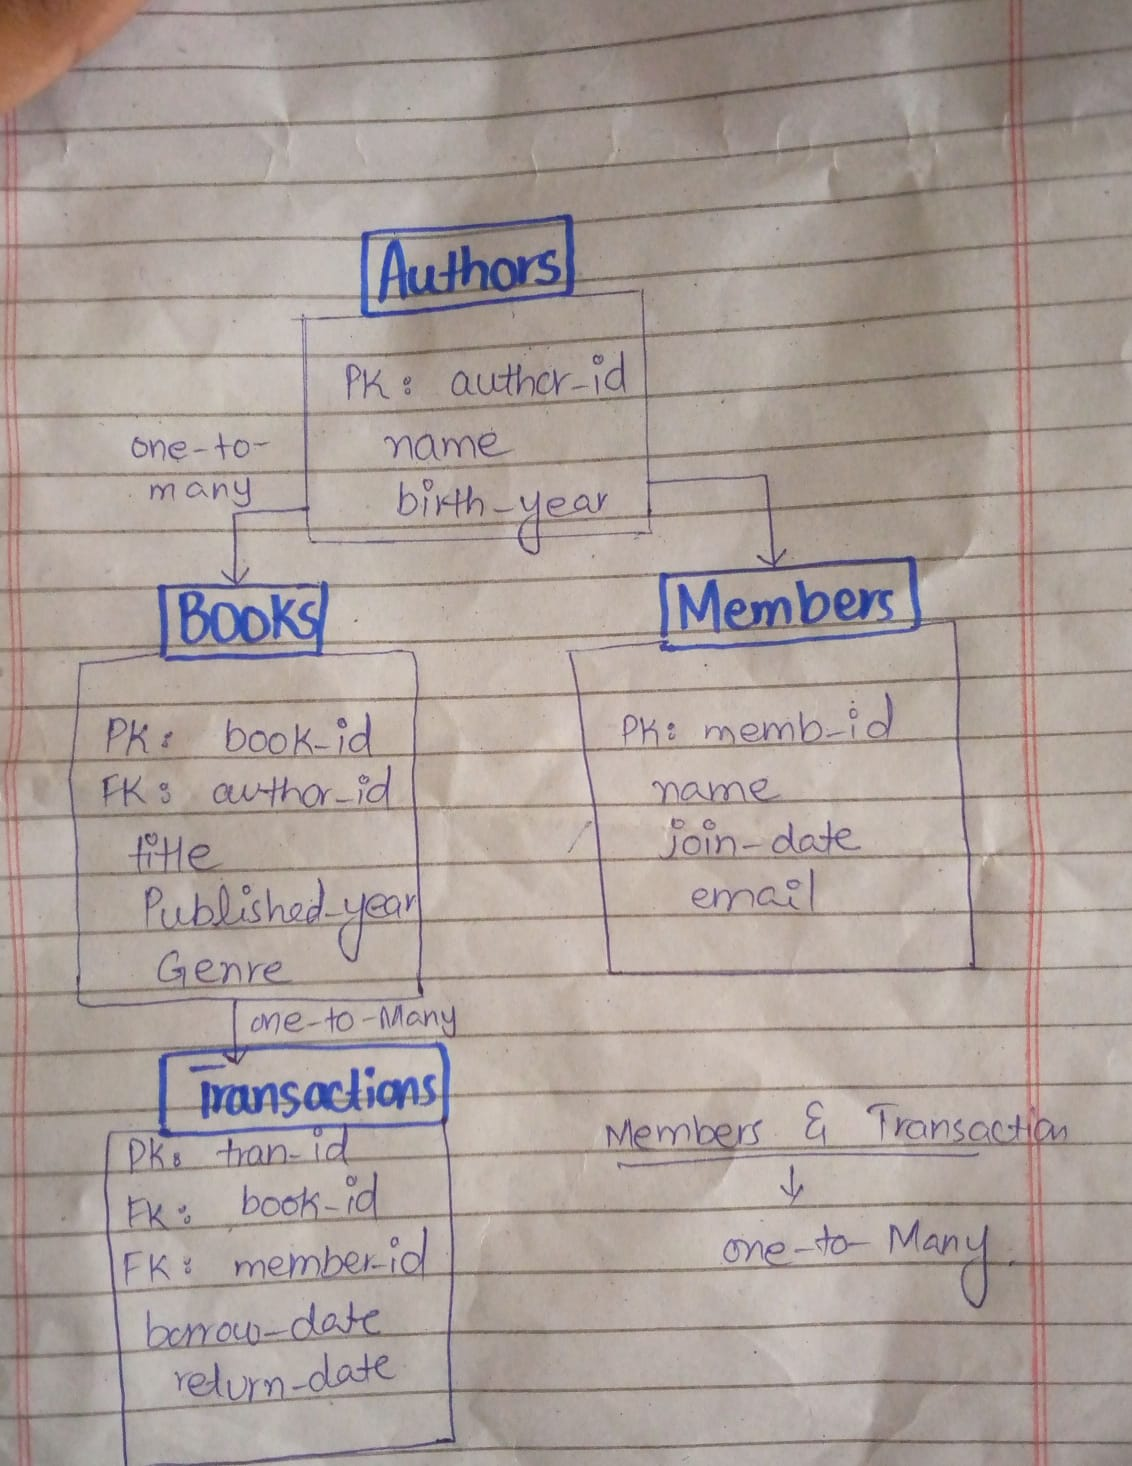 Authors
PK: author-id
name
birth-year
one-to-
many
Books
PK: book-id
FK: author-id
title
Published-year
Genre
Members
PK: memb-id
name
join-date
email
one-to-Many
Transactions
PK: tran-id
FK: book-id
FK: member-id
borrow-date
return-date
Members & Transaction
one-to-Many